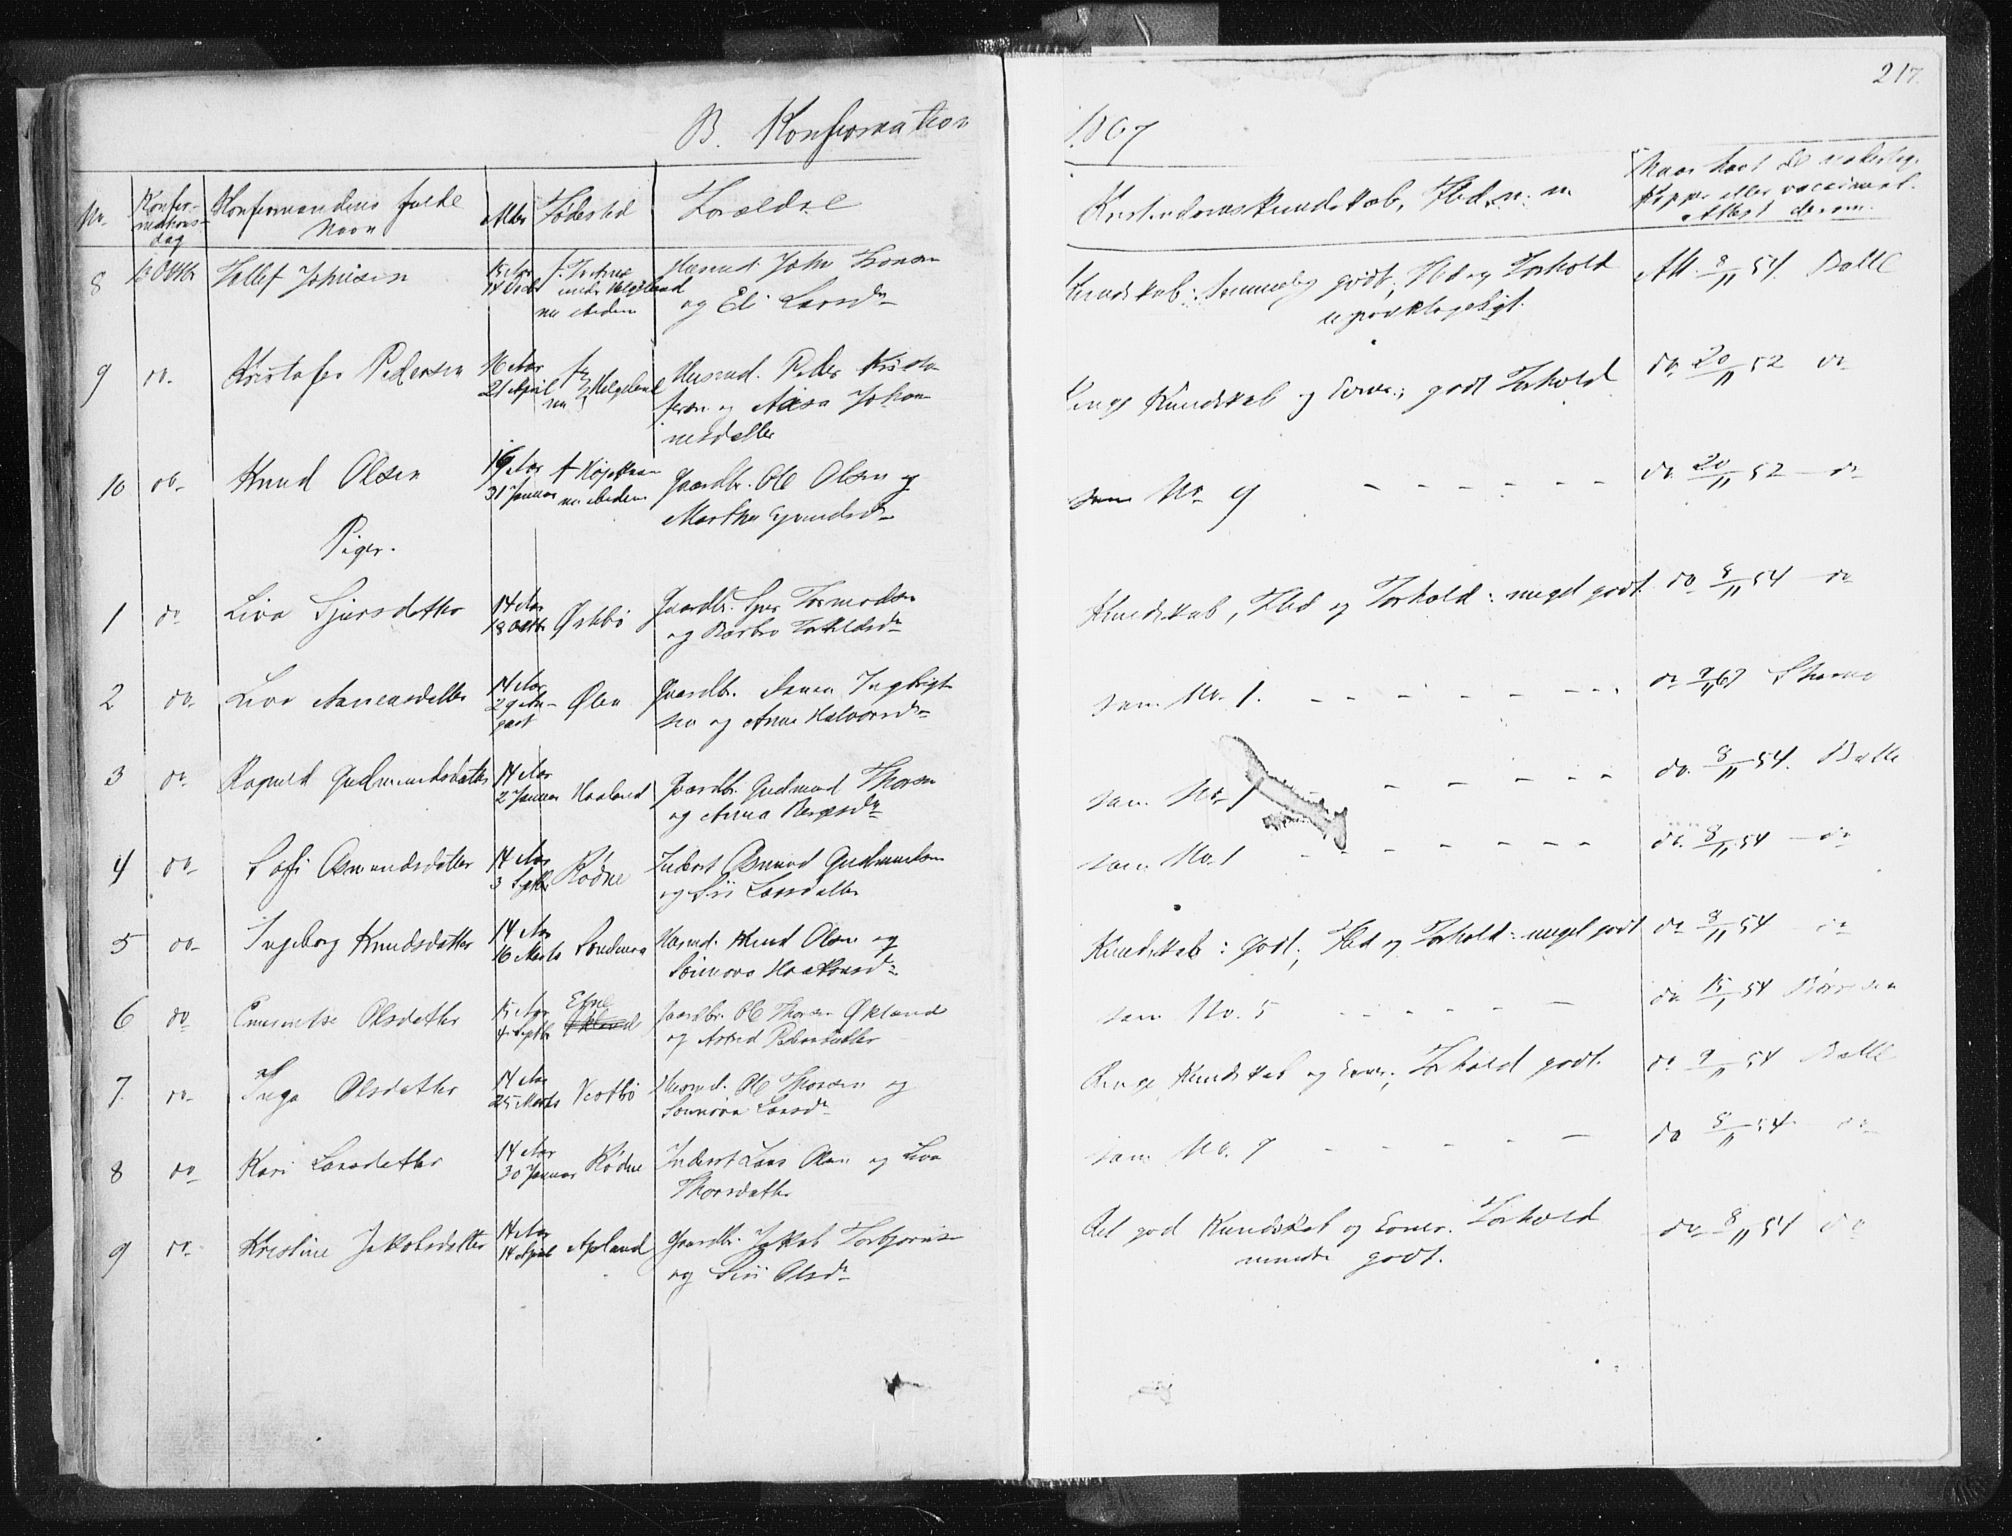 217.
B. Konfirmation
1867
No.
Konfir-
mations-
dag
Konfirmandens fulde
Navn
Alder
Fødested
Forældre
Kristendomskundskab, Flid n. m
Naar havt de naturlig.
Kopper eller vaccineret.
Attest derom.
8
13 Oktbr
Johnsen
15 Aar
nu Aadem
Husmd. John
og Eli Larsdr
Kundskab: temmelig godt; Flid og Forhold
upaaklageligt.
Att. 8/11 54. Balle
9
do
Kristofer Pedersen
16 Aar
21 April
Helgeland
Husmd. Peder Kristo
fersen og Aasa Johan
nesdatter
Ringe Kundskab og Evner; godt Forhold
do 20/11 52 do
10
do
Knud Olsen
16 Aar
31 Januar
Gaardbr. Ole Olsen og
Martha
som No 9 - - - - - -
do. 20/11 52 - do
Piger.
1
do
Liva Sjursdatter
14 Aar
18 Oktbr
Ørstbø
Gaardbr. Sjur Tormodsen
og Barbro Torkildsdr
Kundskab, Flid og Forhold: meget godt.
do 8/11 54 - do
2
do
Liva Aanensdatter
14 Aar
29 Au-
gust
Ølen
Gaardbr. Aanen Ingbrigt
sen og Anna Halvorsdr
som No. 1. - - - - - - -
do 9/11 67
3
do
Ragnild Gudmundsdatter
14 Aar
2 Januar
Haaland
Gaardbr. Gudmund Thorsen
og Anna
som No. 1 - - - - -
do. 8/11 54. Balle
4
do
Sofi Asmundsdatter
14 Aar
3 Septbr
Rødne
Inderst Asmund Gudmundsen
og Siri Larsdatter
som No. 1 - - - - - - - -
do. 8/11 54 - do
5
do
Ingeborg Knudsdatter
14 Aar
16 Marts
Husmd. Knud Olsen og
Sønnova Haakonsdr
Kundskab: godt; Flid og Forhold: meget godt
do 8/11 54 do
6
do
Olsdatter
15 Aar
4 Septbr
Etne
Økland
Gaardbr. Ole Thorsen Økland
og Astrid Pedersdatter
som No. 5 - - - - -
do 15/ 54
7.
do
Inga Olsdatter
14 Aar
25 Marts
Vestbø
Husmd. Ole Thorsen og
Sønnova Larsdr
Ringe Kundskab og Evner; Forhold godt.
do 9/11 54 Balle
8
do
Kari Larsdatter
14 Aar
30 Januar
Rødne
Inderst Lars Olsen og Liva
Thorsdatter
som No. 7 - - - - -
do 8/11 54 do
9
do
Kristine Jakobsdatter
14 Aar
14 April
Apland
Gaardbr. Jakob Torbjørnsen
og Siri Olsdr
Ret god Kundskab og Evner. Forhold
mindre godt.
do 8/11 54 do